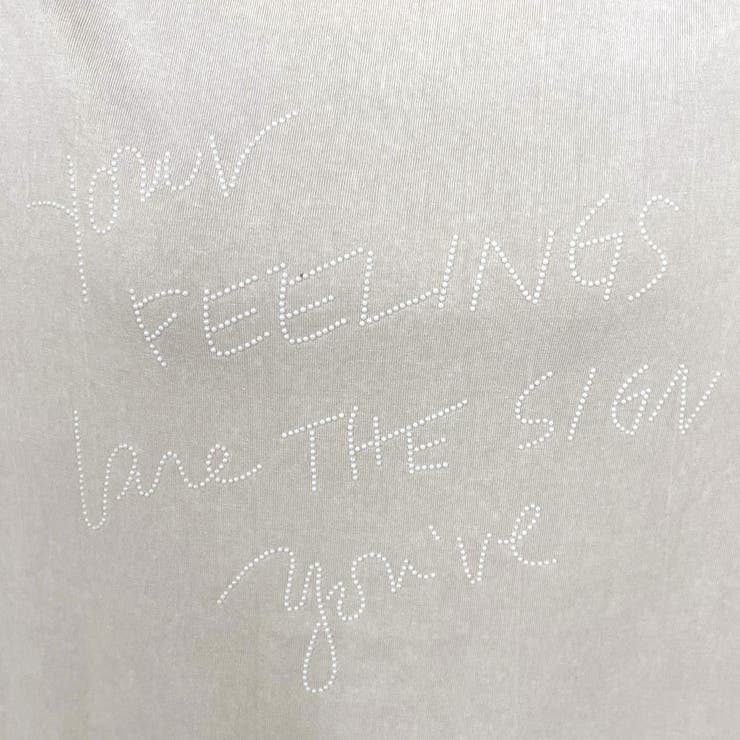 your
FEELINGS
are THE SIGN
you've